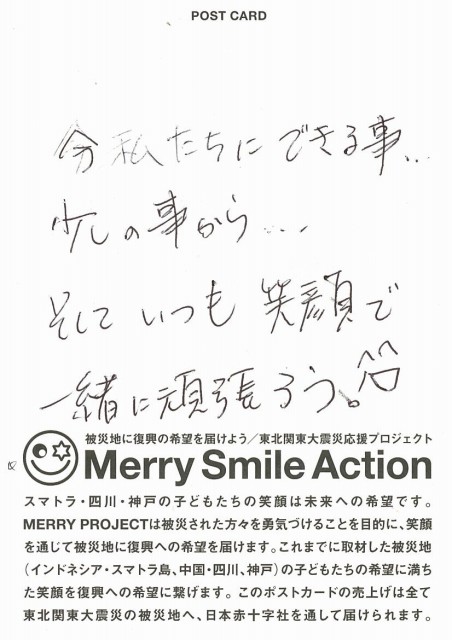 POST CARD
今 私たちに できる事...
少しの事から...
そして いつも 笑顔で
一緒に頑張ろう。
被災地に復興の希望を届けよう／東北関東大震災応援プロジェクト
Merry Smile Action
スマトラ・四川・神戸の子どもたちの笑顔は未来への希望です。
MERRY PROJECTは被災された方々を勇気づけることを目的に、笑顔
を通じて被災地に復興への希望を届けます。これまでに取材した被災地
（インドネシア・スマトラ島、中国・四川、神戸）の子どもたちの希望に満ち
た笑顔を復興への希望に繋げます。このポストカードの売上げは全て
東北関東大震災の被災地へ、日本赤十字社を通して届けられます。